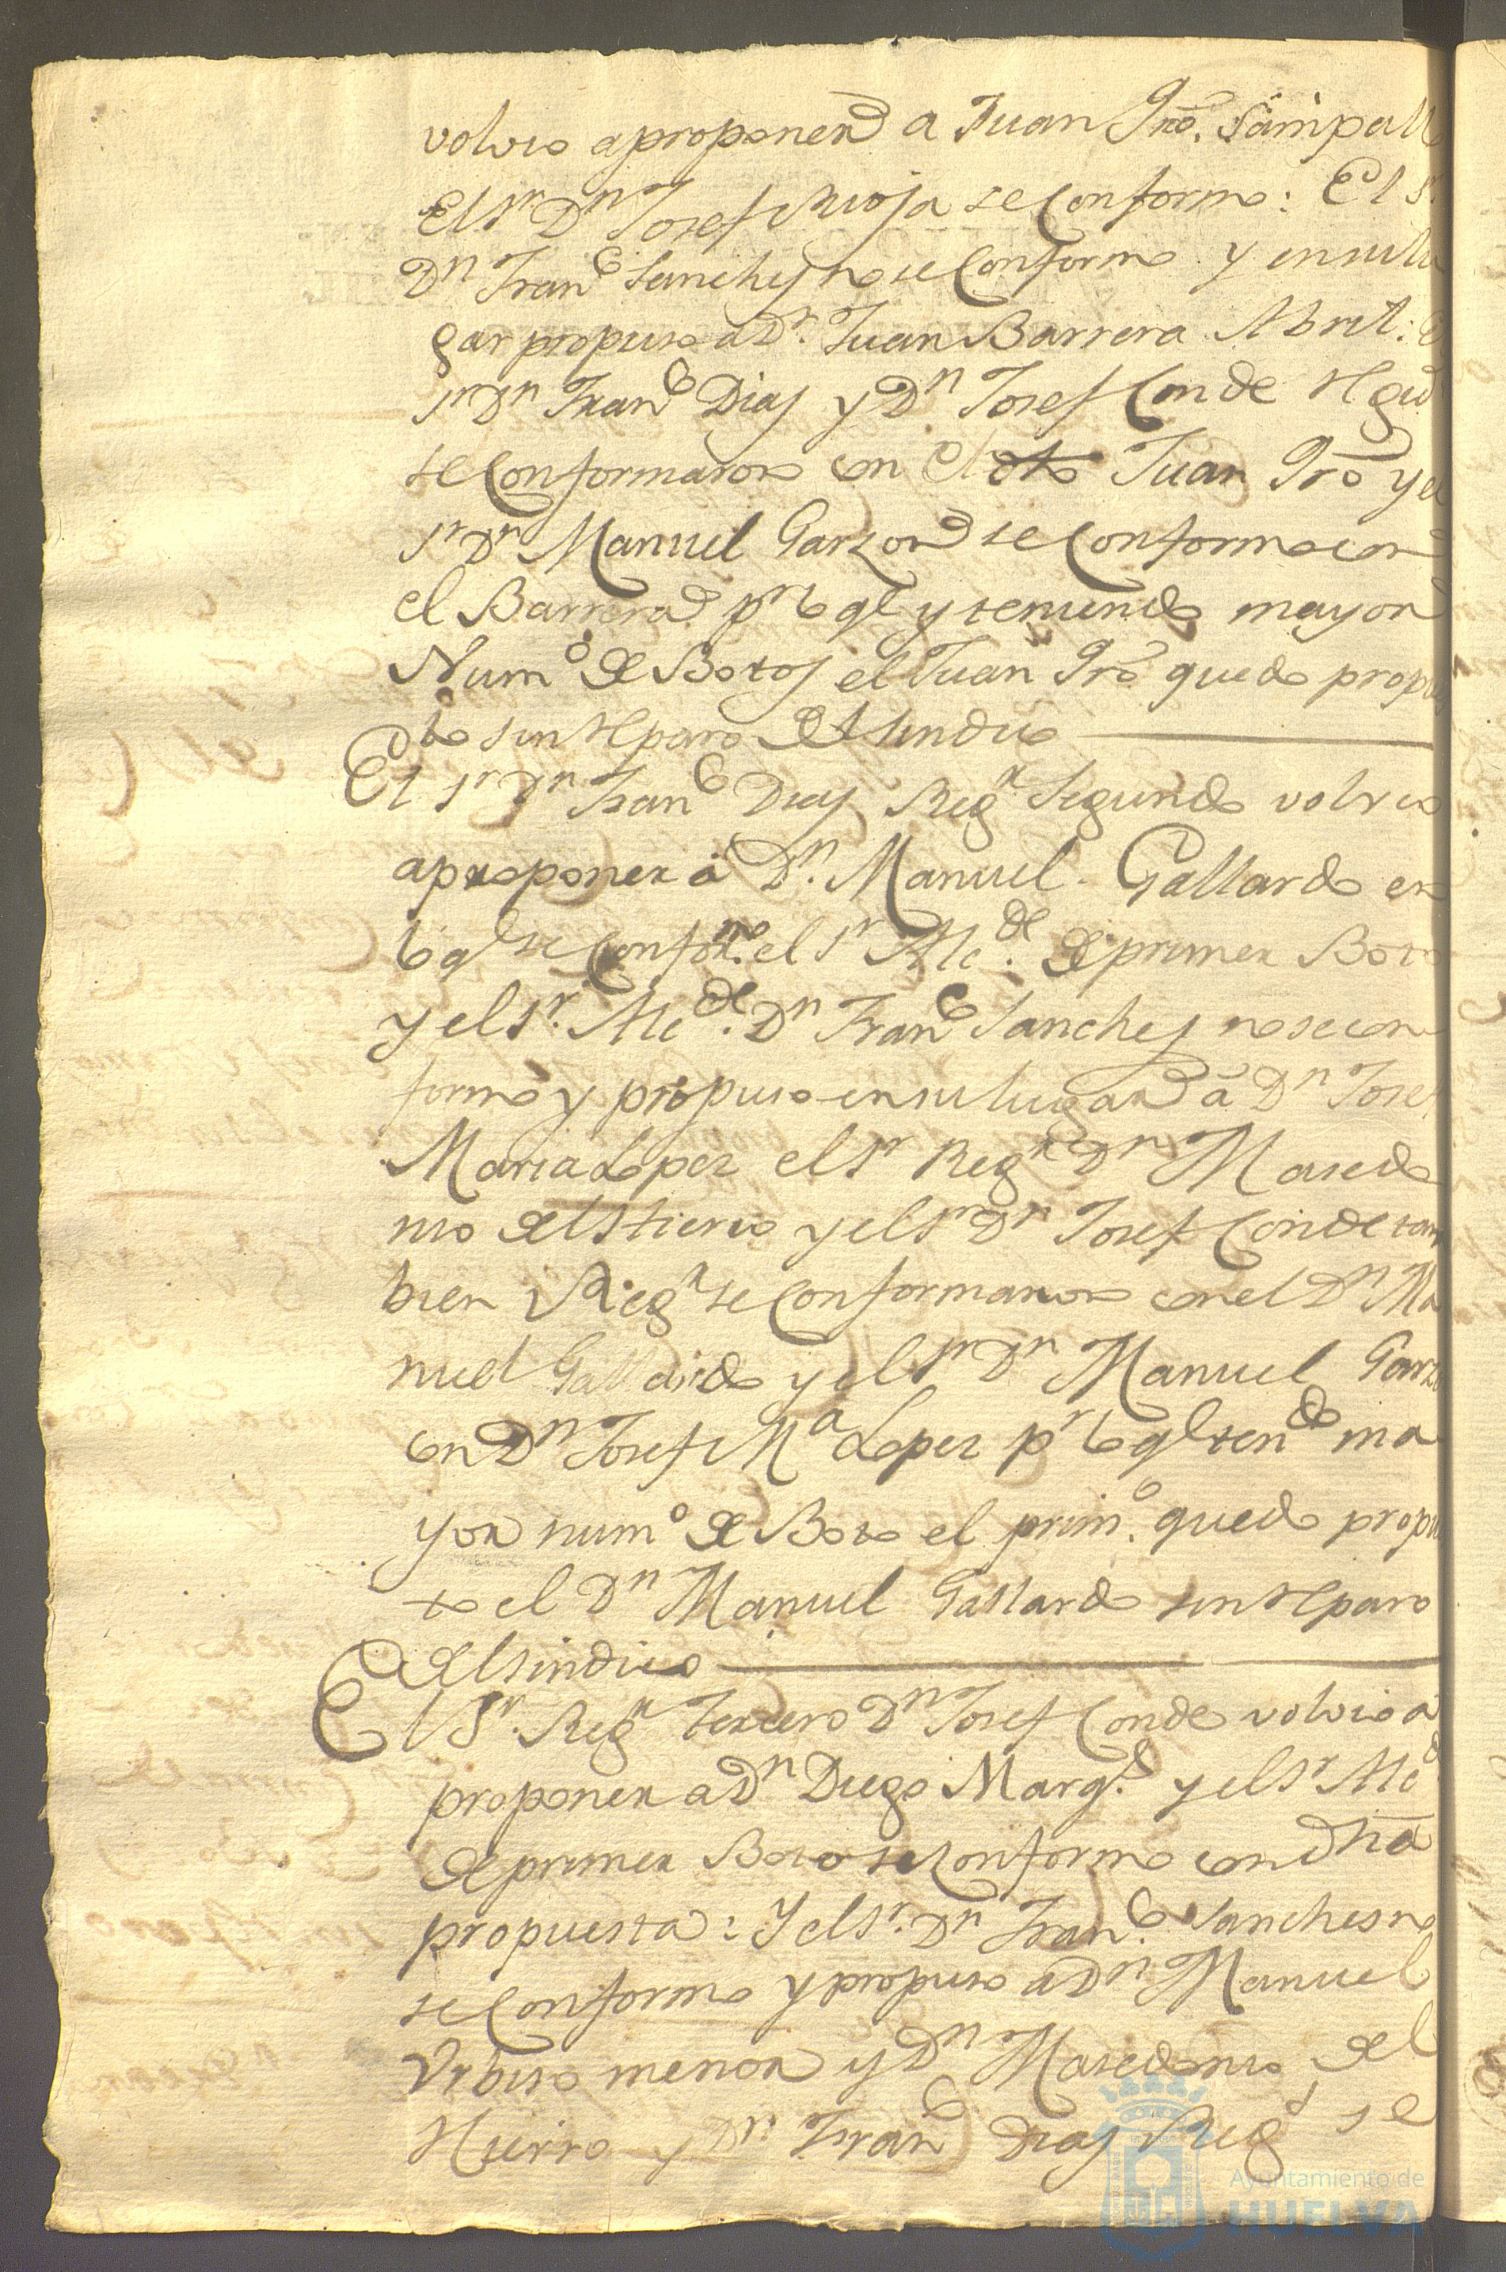 volvio aproponer a Juan Gro. Sampall
El Sr Dn Josef Rioja se Conformo: El Sr
Dn Franco Sanchez no se Conformo y en su lu
gar propuso a Dn. Juan Barrera Abril: El
Sr Dn Franco Diaz y Dn Josef Conde Regid
se Conformaron con el Juan Gro y el
Sr Dn Manuel Garzon se Conformo con
el Barrera pr lo ql y teniendo mayor
Numo de Botos el Juan Gro quedo propu
to sin Reparo del sindico
El Sr Dn Franco Diaz Regr Segundo volvio
aproponer a Dn. Manuel Gallardo en
lo ql se Conformo. el Sr Alcde. de primer Boto
y el Sr. Alcde. Dn Franco Sanchez no se con
formo y propuso en su lugar a Dn Josef
Maria Lopez el Sr Regr Dn Macedo
nio del Hierro y el Sr Dn Josef Conde tam
bien Regr se Conformaron con el Dn Ma
nuel Gallardo y el Sr Dn Manuel Garzo
con Dn Josef Ma Lopez pr lo ql tendo ma
yor numo de Boto el primo. quedo propu
to el Dn Manuel Gallardo sin Reparo
del sindico
El Sr. Regr tercero Dn Josef Conde volvio a
proponer a Dn Diego Margl. y el Sr Alcde
de primer Boto se Conformo con dha
propuesta: Y el Sr. Dn Franco. Sanches no
se Conformo y propuso a Dn Manuel
Urbiso menor y Dn Macedonio del
Hierro y Dn. Franco Diaz Regd se
Ayuntamiento de
HUELVA